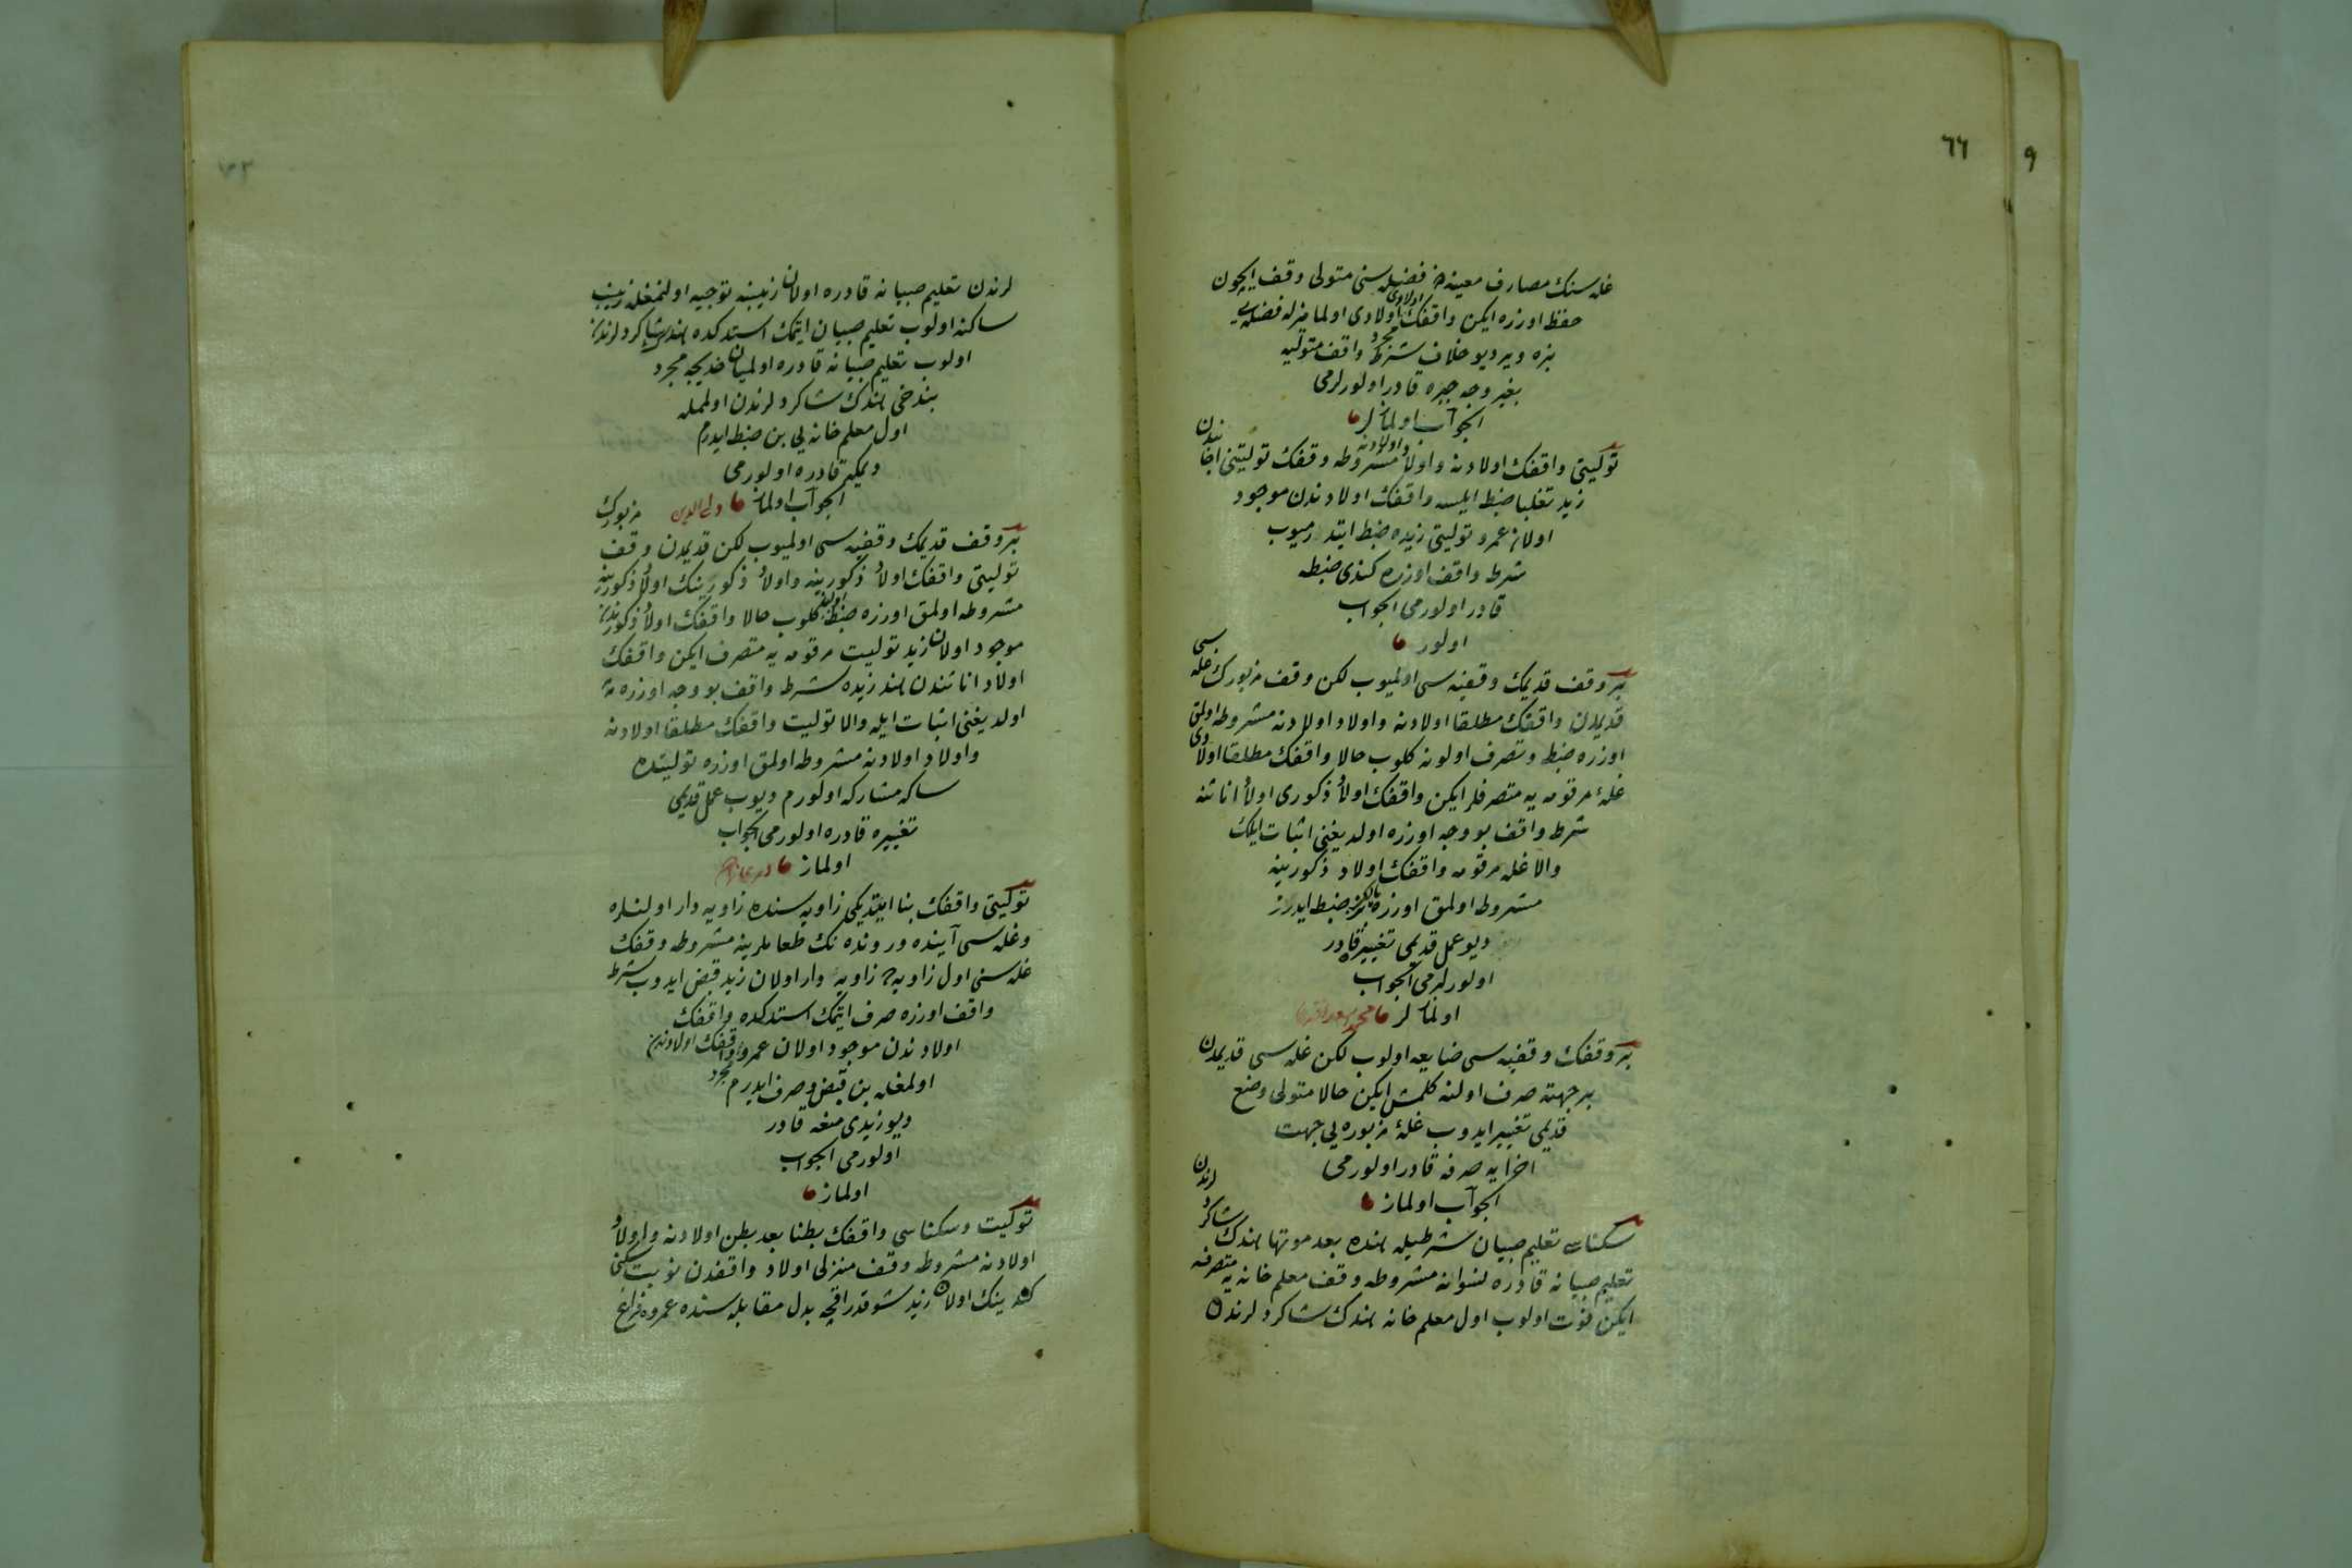 ٦٦
٩
غله سنك مصارف معينه دن فضله سنى متولى وقف ايچون
حفظ اوزره ايكن واقفك اولادى اولادى اولمامزله فضله يى
بزه ويرديو خلاف شرط واقف متوليه
بغير وجه جبره قادر اولورلرمى
الجواب اولمازلر
توليتى واقفك اولادنه واولاد اولادنه مشروطه وقفك توليتنى اجانبدن
زيد تغلبا ضبط ايلسه واقفك اولادندن موجود
اولان عمرو توليتى زيده ضبط ايتدرميوب
شرط واقف اوزره كندى ضبطه
قادر اولورمى الجواب
اولور
بر وقف قديمك وقفيه سى اولميوب لكن وقف مزبورك غله سى
قديمدن واقفك مطلقا اولادنه واولاد اولادنه مشروطه اولمق
اوزره ضبط وتصرف اولونه كلوب حالا واقفك مطلقا اولادى
غله مرقومه يه متصرفلر ايكن واقفك اولاد ذكورى اولاد اناثنه
شرط واقف بو وجه اوزره اولديغنى اثبات ايلك
والا غله مرقومه واقفك اولاد ذكورينه
مشروط اولمق اوزره بز ضبط ايدرز
ديو عمل قديمى تغييره قادر
اولورلرمى الجواب
اولمازلر
بر وقفك وقفيه سى ضايعه اولوب لكن غله سى قديمدن
بر جهته صرف اولنه كلمش ايكن حالا متولى وضع
قديمى تغيير ايدوب غله مزبوره يى جهت
اخرايه صرفه قادر اولورمى
الجواب اولماز
سكناسى تعليم صبيان شرطيله هنده بعد موتها هندك شاكردلرندن
تعليم صبيانه قادره نسوانه مشروطه وقف معلم خانه يه متصرفه
ايكن فوت اولوب اول معلم خانه هندك شاكردلرندن
لرندن تعليم صبيانه قادره اولان زينبه توجيه اولنمغله زينب
ساكنه اولوب تعليم صبيان ايتمك استدكده هندك شاكردلرندن
اولوب تعليم صبيانه قادره اولميان خديجه مجرد
بندخى هندك شاكردلرندن اولمغله
اول معلم خانه يى بن ضبط ايدرم
ديمكه قادره اولورمى
الجواب اولماز ولى الدين
بر وقف قديمك وقفيه سى اولميوب لكن قديمدن وقف مزبورك
توليتى واقفك اولاد ذكورينه واولاد ذكورينك اولاد ذكورينه
مشروطه اولمق اوزره ضبط اولنه كلوب حالا واقفك اولاد ذكورندن
موجود اولان زيد توليت مرقومه يه متصرف ايكن واقفك
اولاد اناثندن هند زيده شرط واقف بو وجه اوزره
اولديغنى اثبات ايله والا توليت واقفك مطلقا اولادنه
واولاد اولادنه مشروطه اولمق اوزره توليتده
سكا مشاركه اولورم ديوب عمل قديمى
تغييره قادره اولورمى الجواب
اولماز
توليتى واقفك بنا ايتديكى زاويه سنده زاويه دار اولنلره
وغله سى آينده ورونده نك طعاملرينه مشروطه وقفك
غله سنى اول زاويه ده زاويه دار اولان زيد قبض ايدوب شرط
واقف اوزره صرف ايتمك استدكده واقفك
اولادندن موجود اولان عمرو مجرد واقفك اولادندن
اولمغله بن قبض وصرف ايدرم
ديو زيدى منعه قادر
اولورمى الجواب
اولماز
توليت وسكناسى واقفك بطنا بعد بطن اولادنه واولاد
اولادنه مشروطه وقف منزلى اولاد واقفدن نوبت سكنى
كندينك اولان زيد شو قدر اقچه بدل مقابله سنده عمروه فراغ